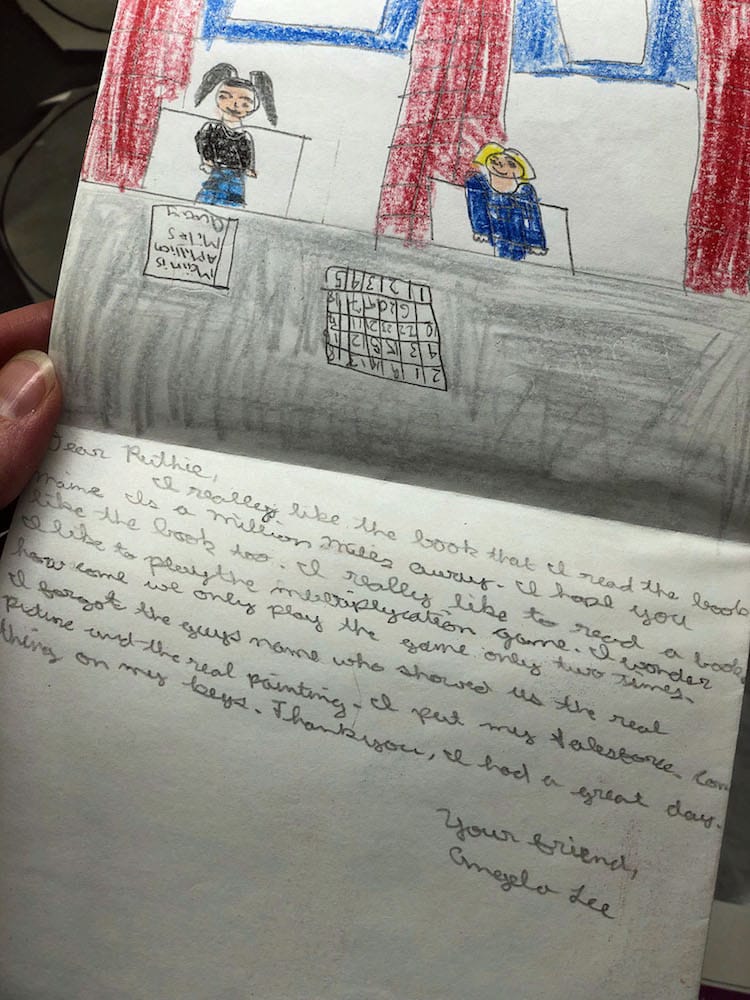 Main is
A Million
Miles
Away
Dear Ruthie,
I really like the book that I read the book
name is a million miles away. I hope you
like the book too. I really like to read a book
I like to playthe multiplycation game. I wonder
how come we only play the game only two times.
I forgot the guys name who showed us the real
picture and the real painting. I put my com
thing on my keys. Thankyou, I had a great day.
Your friend,
Angela Lee